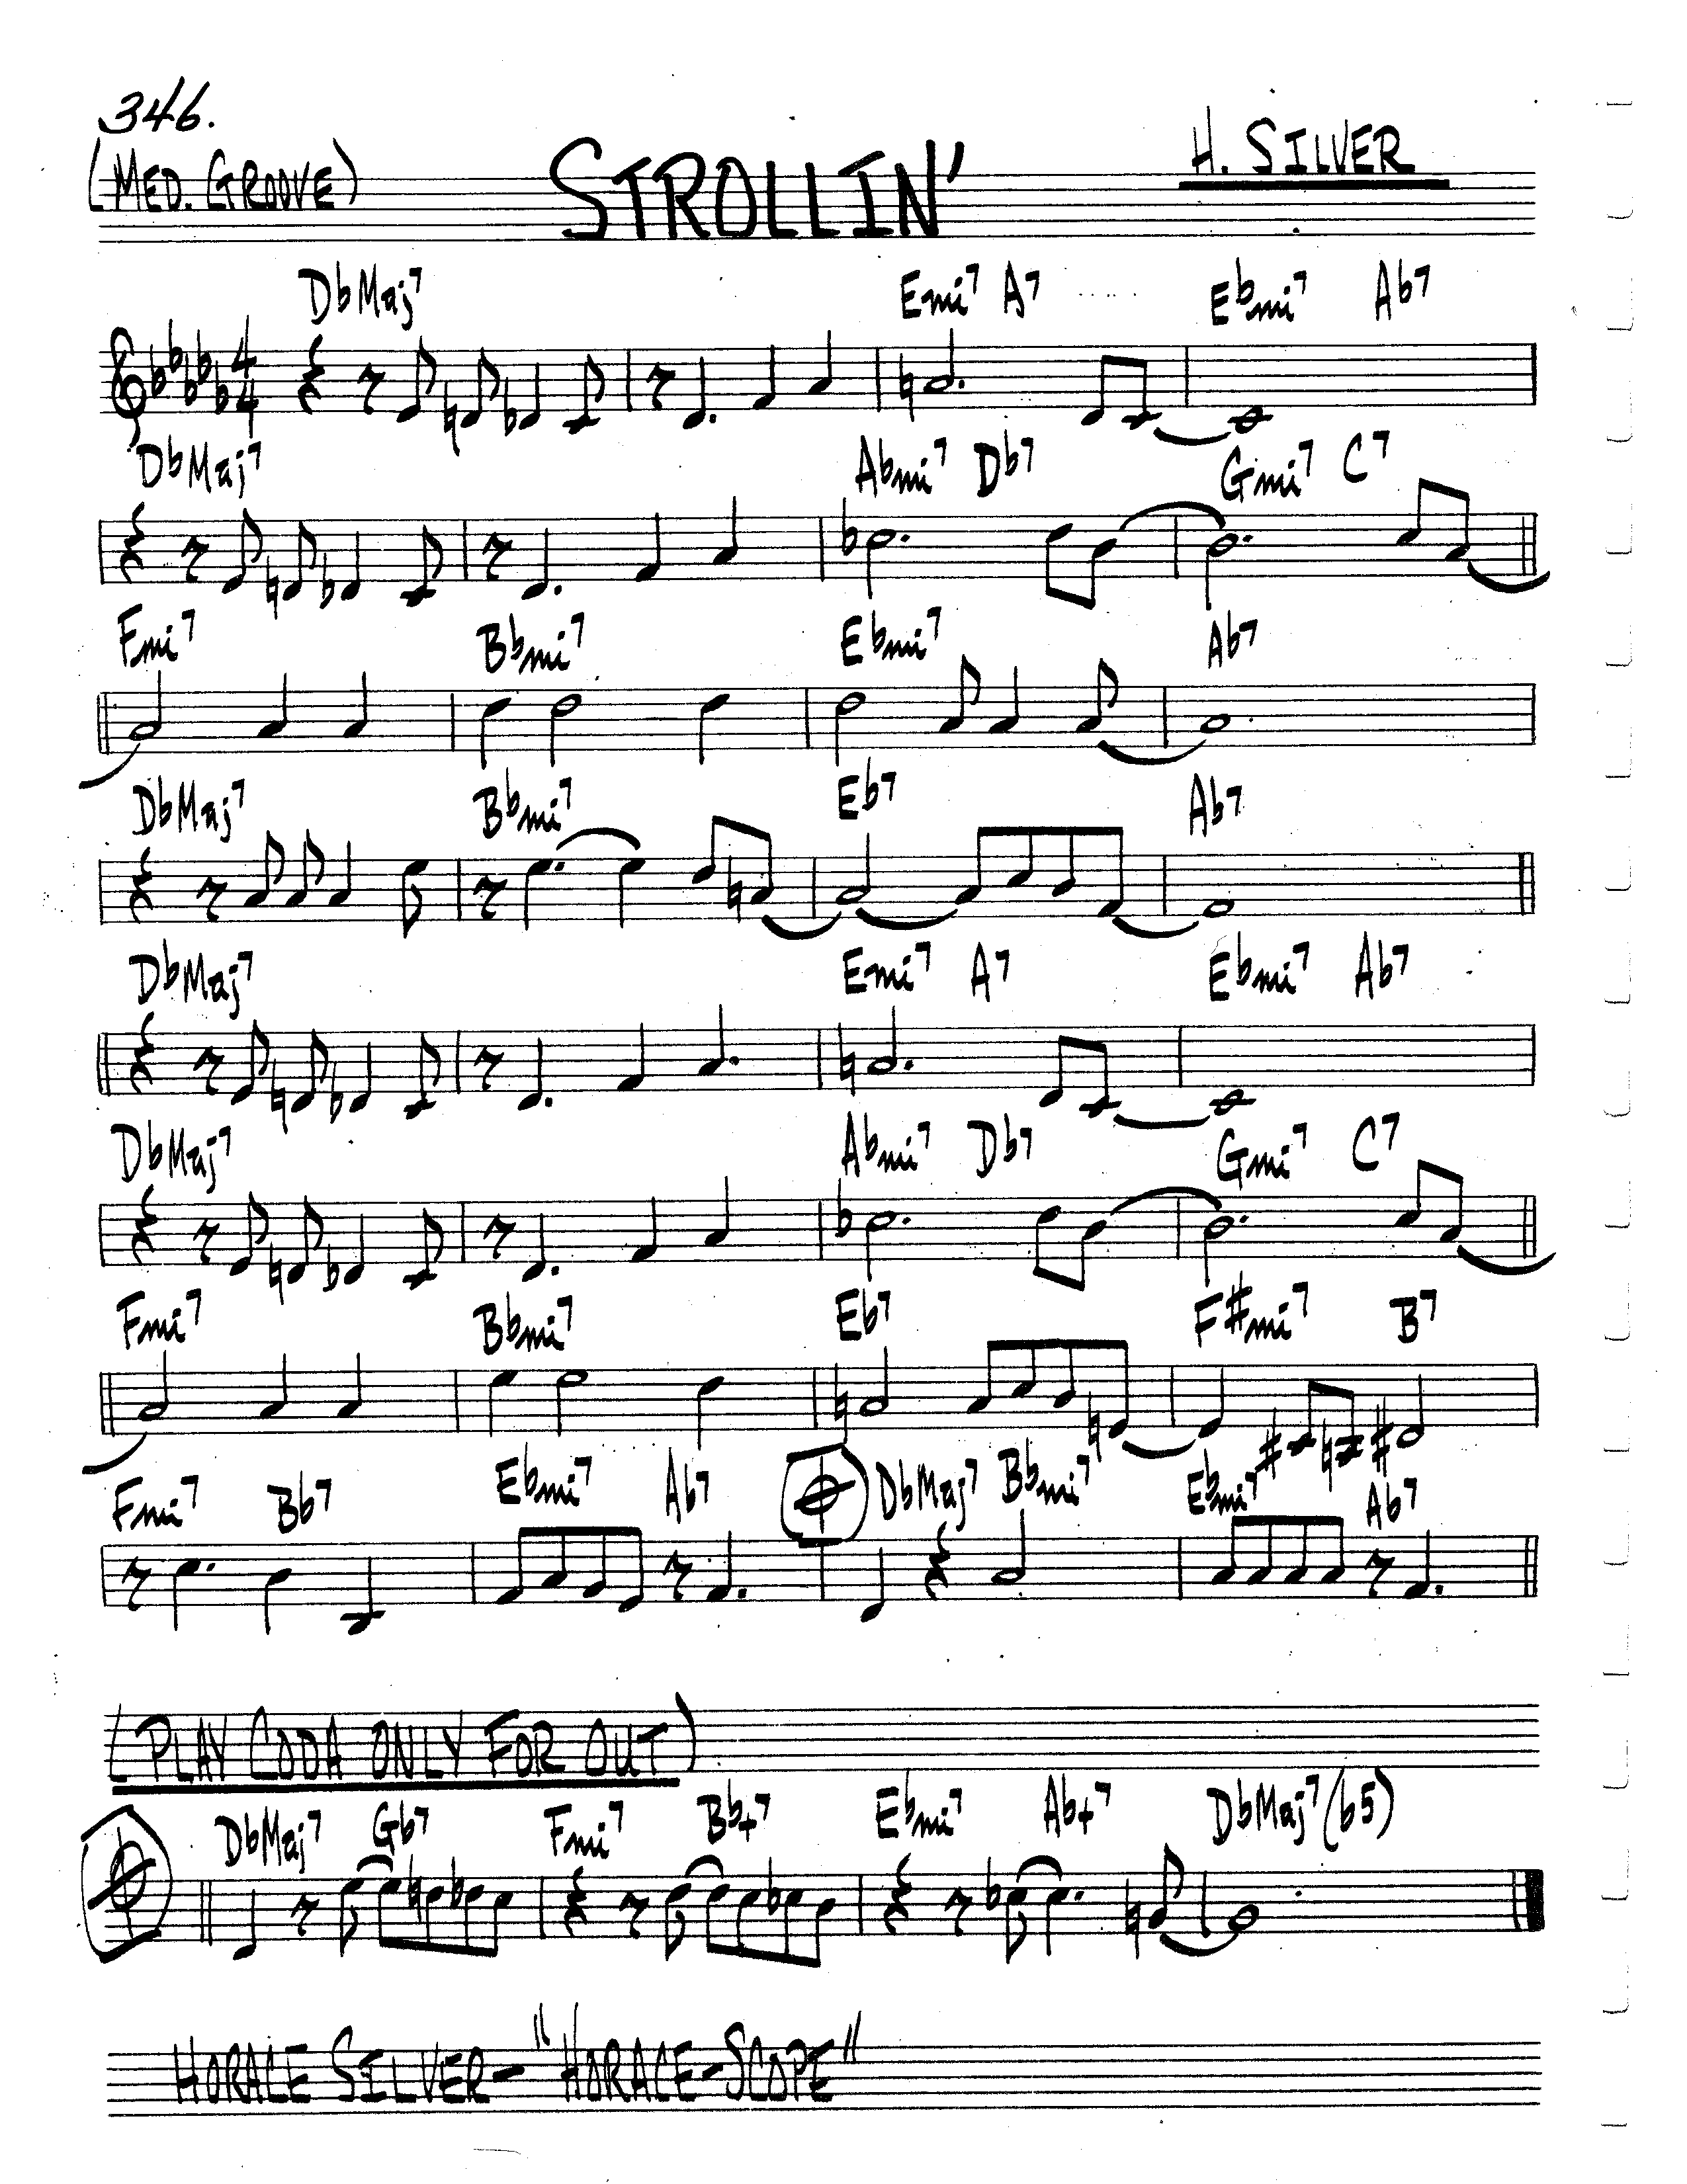 346.
(MED. GROOVE) STROLLIN' H. SILVER
DbMaj7 Emi7 A7 Ebmi7 Ab7
4
4
DbMaj7 Abmi7 Db7 Gmi7 C7
Fmi7 Bbmi7 Ebmi7 Ab7
DbMaj7 Bbmi7 Eb7 Ab7
DbMaj7 Emi7 A7 Ebmi7 Ab7
DbMaj7 Abmi7 Db7 Gmi7 C7
Fmi7 Bbmi7 Eb7 F#mi7 B7
Fmi7 Bb7 Ebmi7 Ab7 DbMaj7 Bbmi7 Ebmi7 Ab7
(PLAY CODA ONLY FOR OUT)
DbMaj7 Gb7 Fmi7 Bb+7 Ebmi7 Ab+7 DbMaj7(b5)
HORACE SILVER - "HORACE-SCOPE"